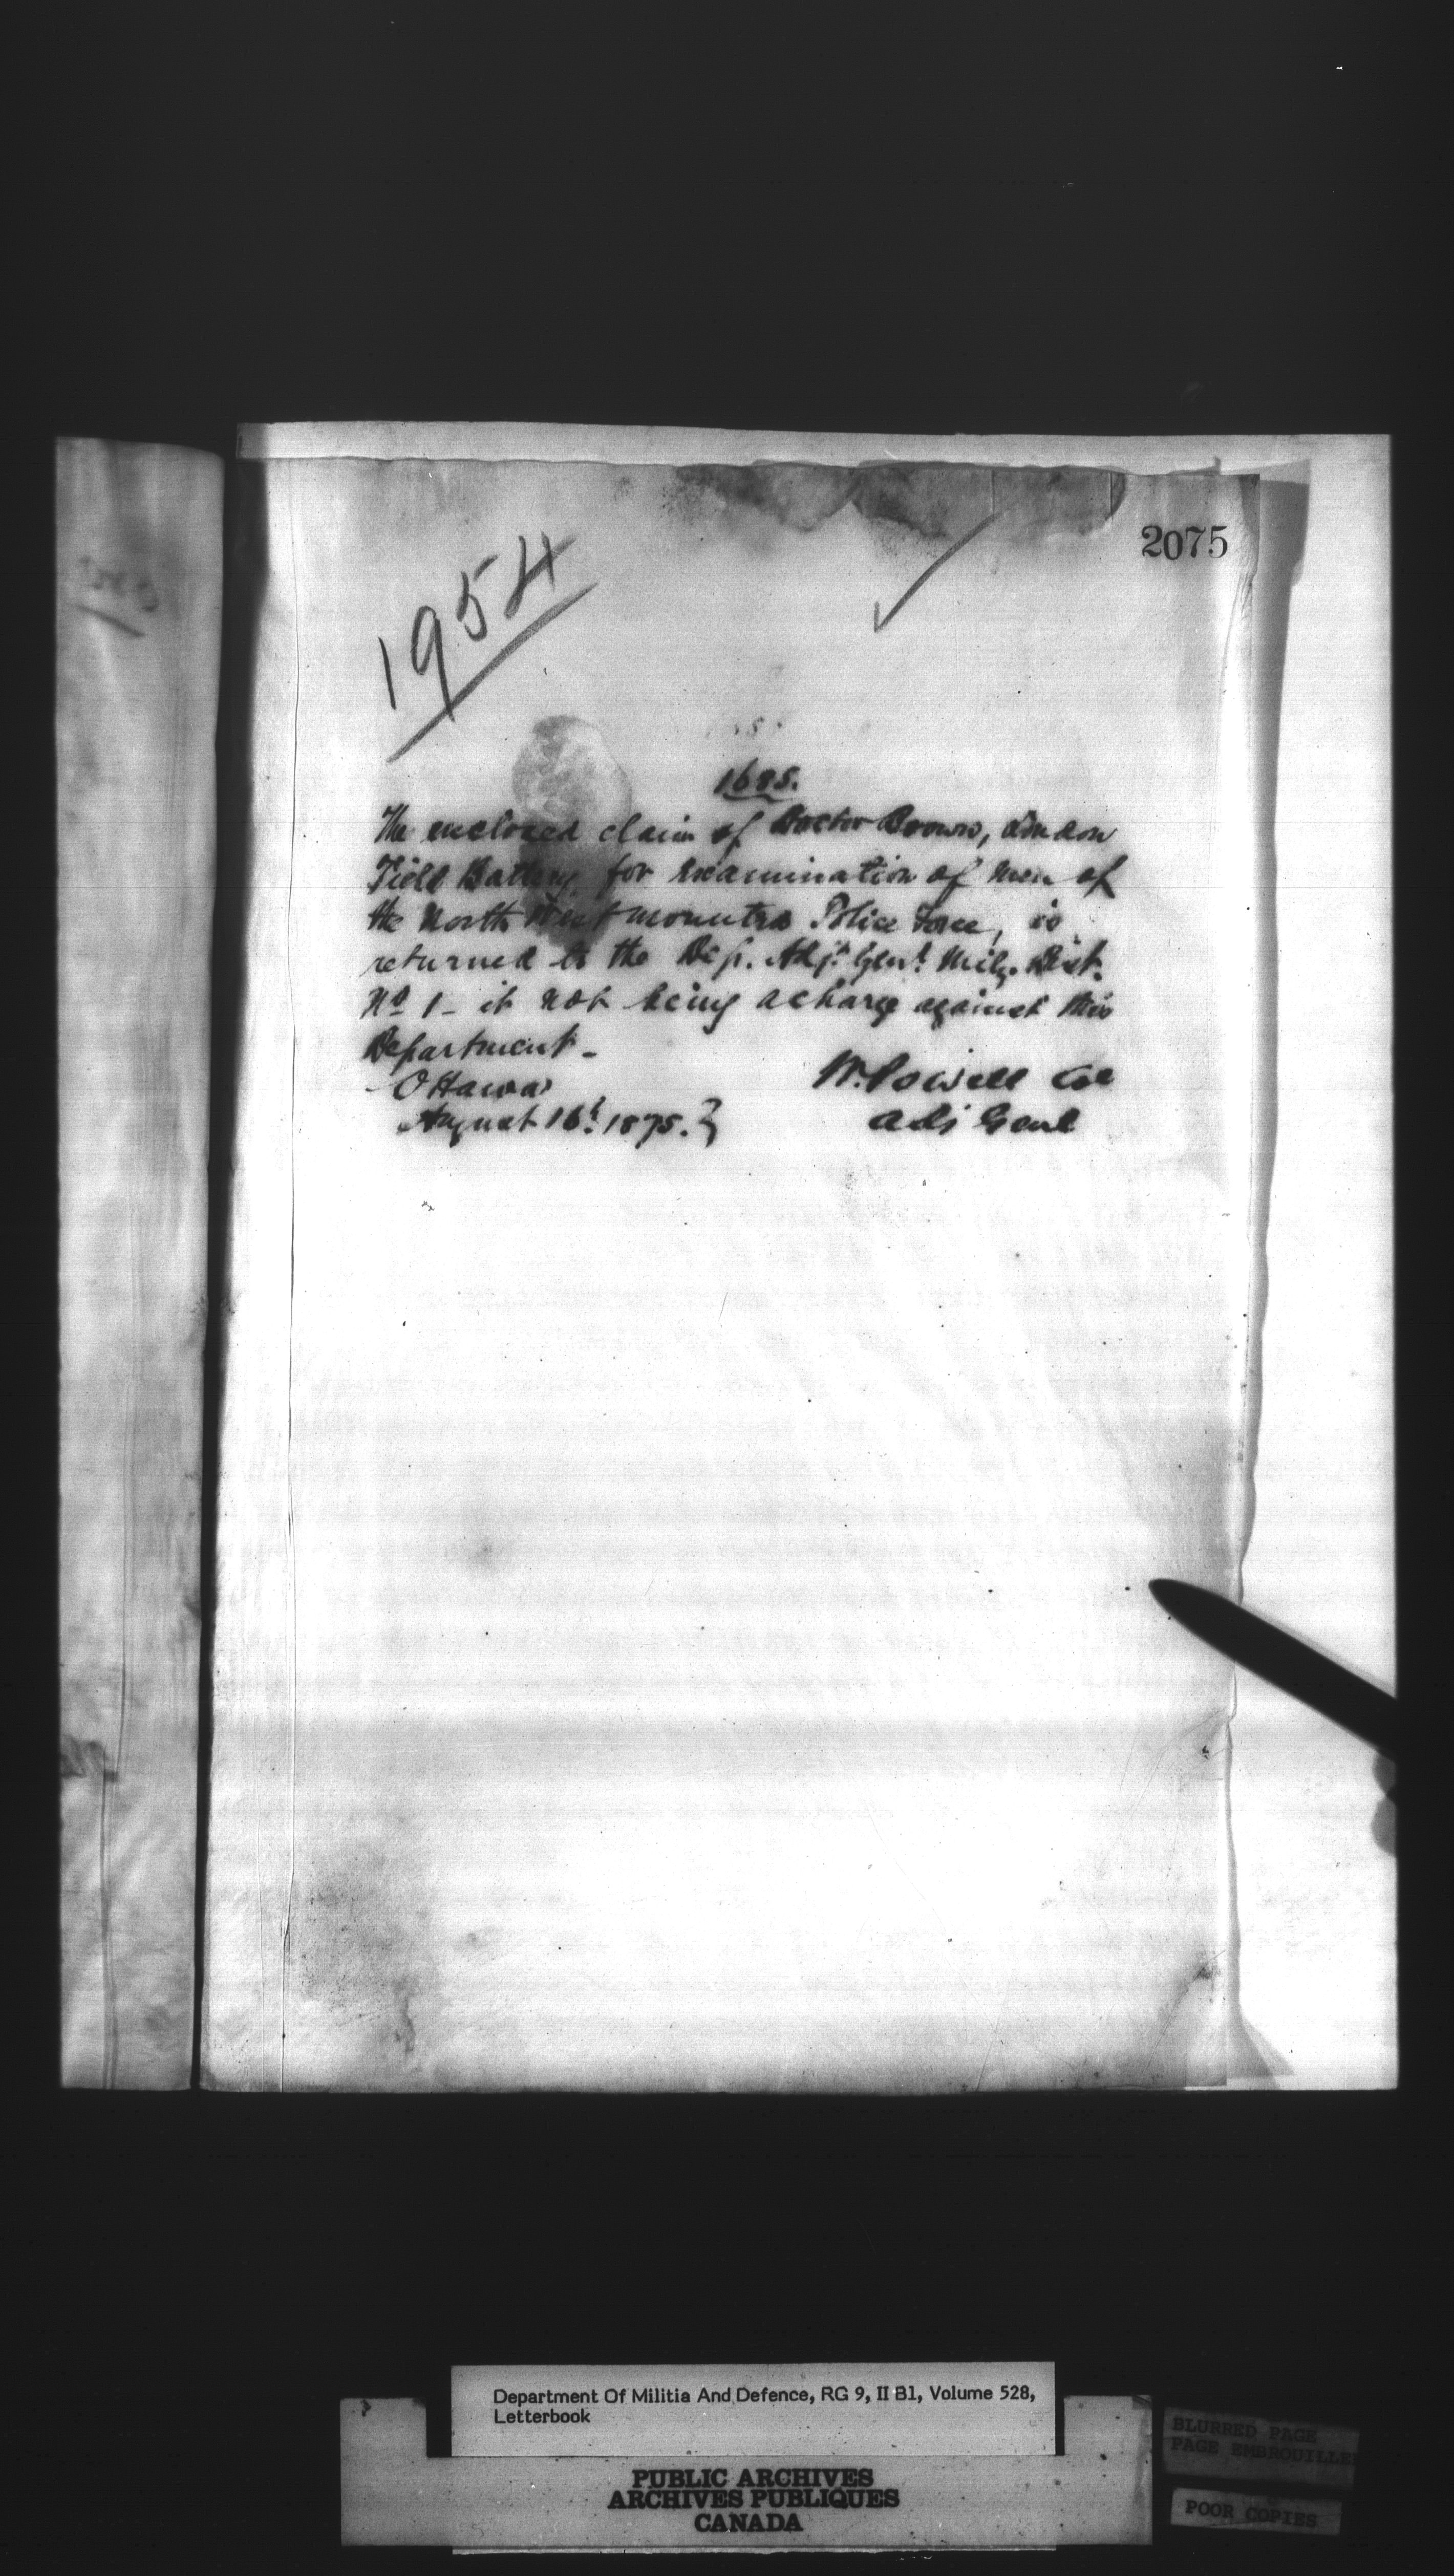 2075
1954
1685.
The enclosed claim of Doctor Brown, London
Field Battery for examination of men of
the North West mounted Police Force, is
returned to the Dep. Adjt. Genl. Mily. Dist.
No 1 - it not being a charge against this
Department -
Ottawa
August 16t. 1875. }
W. Powell Col
Adj Genl
Department Of Militia And Defence, RG 9, II B1, Volume 528,
Letterbook
PUBLIC ARCHIVES
ARCHIVES PUBLIQUES
CANADA
BLURRED PAGE
PAGE EMBROUILLEE
POOR COPIES